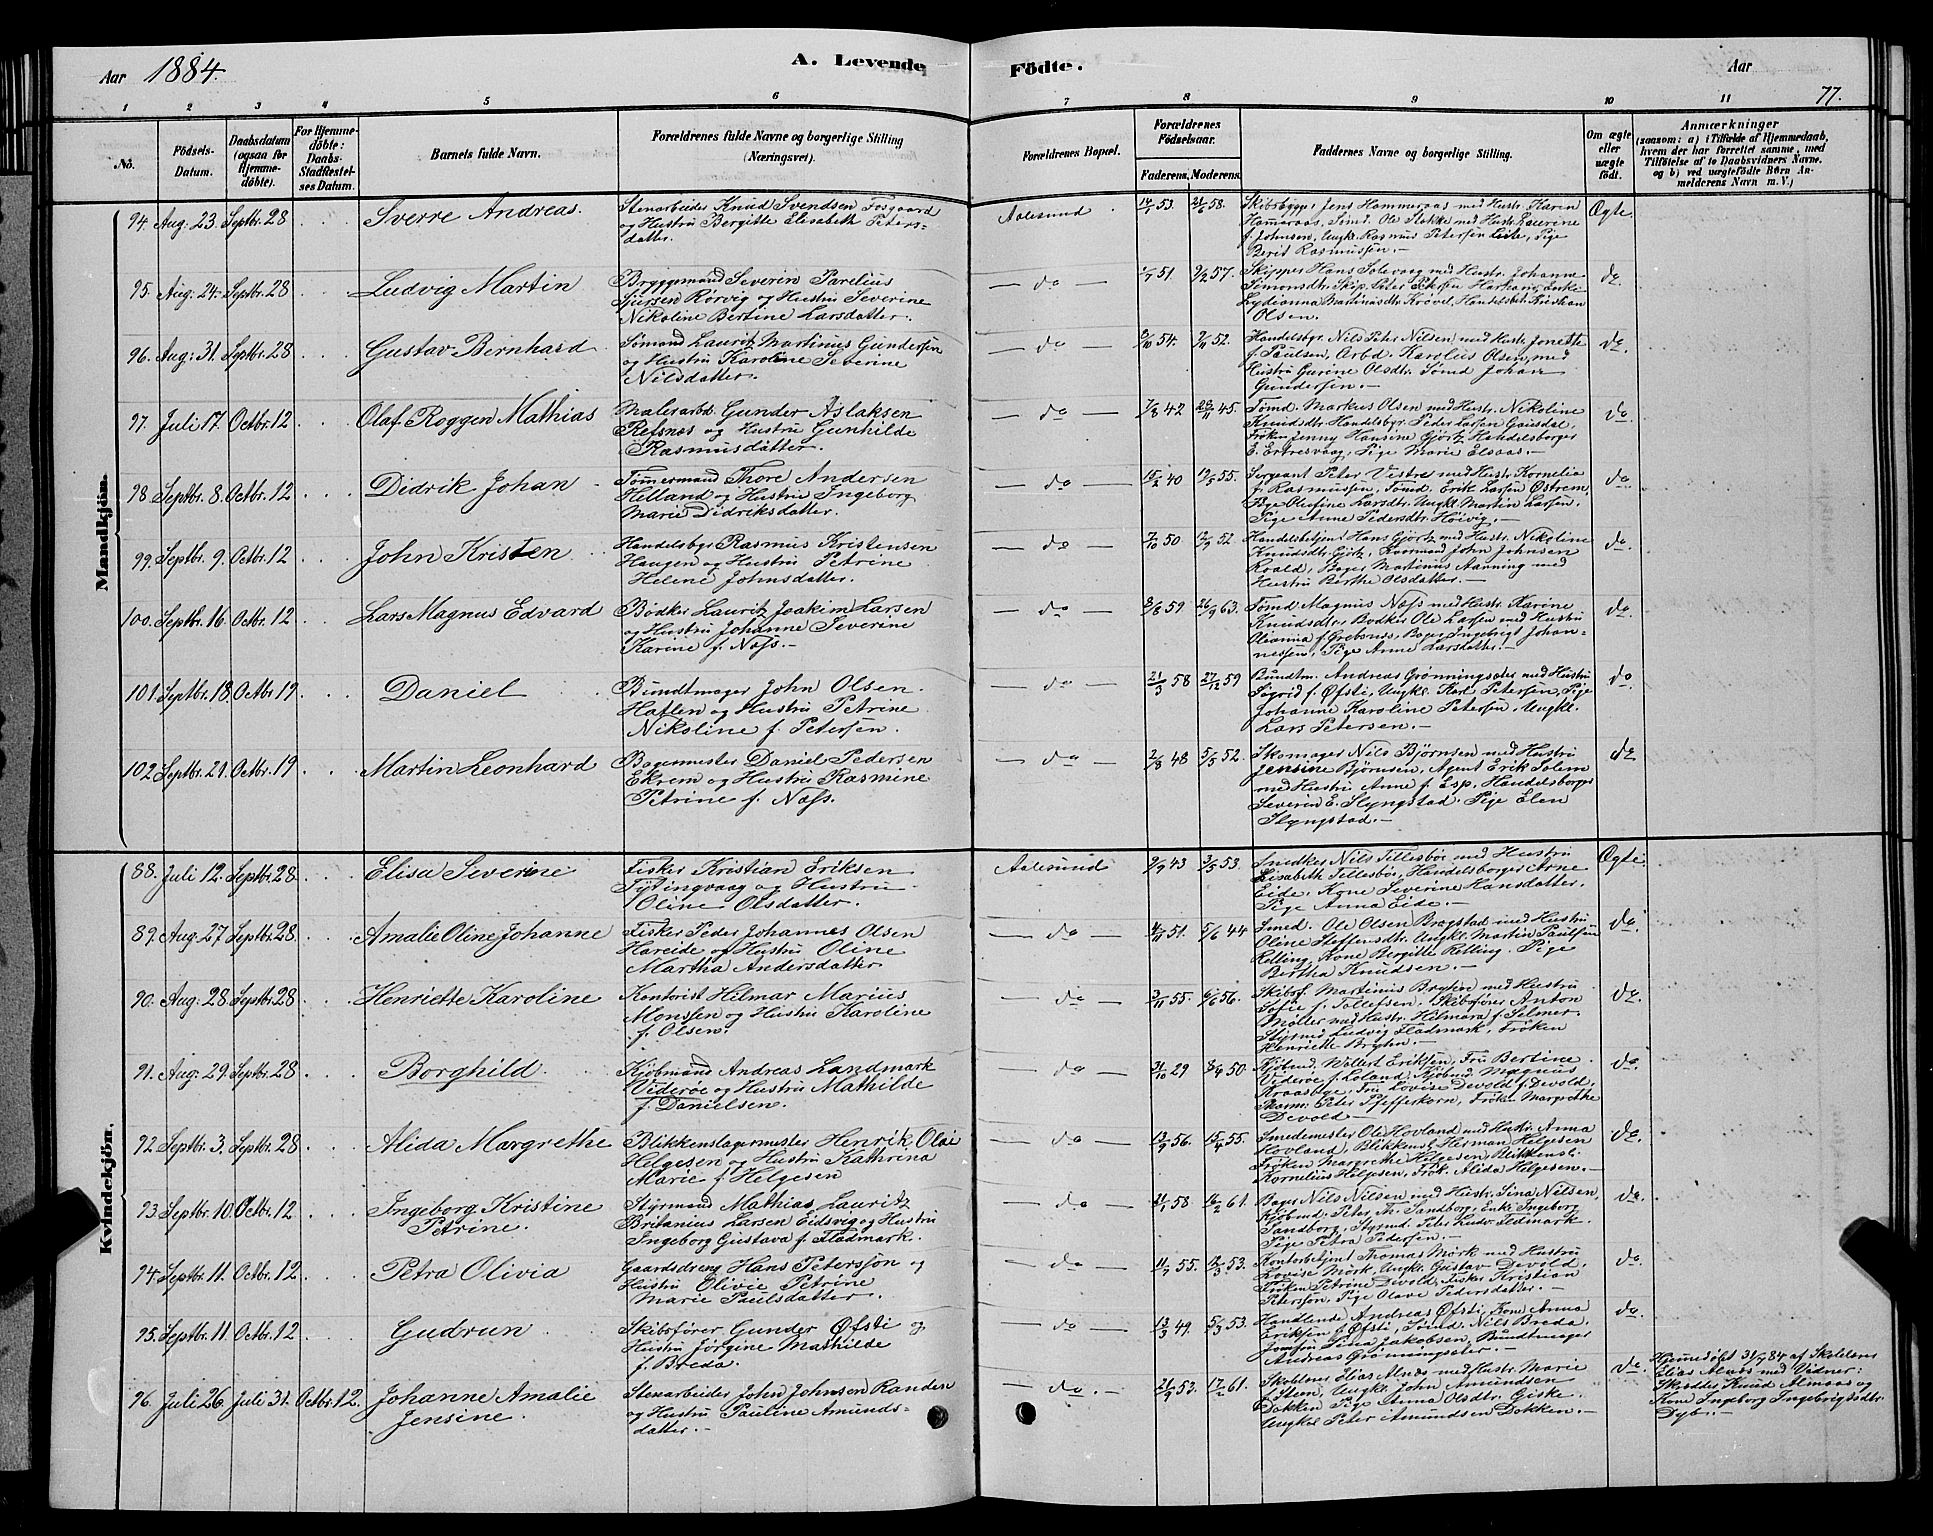 Aar 1884.
A. Levende Födte.
Aar
77.
1 2 3 4 5 6 7 8 9 10 11
No.
Födsels-Datum.
Daabsdatum (ogsaa for Hjemmedöbte).
For Hjemmedöbte: Daabs-Stadfæstelses Datum.
Barnets fulde Navn.
Forældrenes fulde Navne og borgerlige Stilling (Næringsvei).
Forældrenes Bopæl.
Forældrenes Födselsaar.
Faderens. Moderens.
Faddernes Navne og borgerlige Stilling.
Om ægte eller uægte födt.
Anmærkninger
(saasom: a) i Tilfælde af Hjemmedaab, hvem der har forrettet samme, med Tilföielse af to Daabsvidners Navne, og b) ved uægtefödte Børn Anmelderens Navn m. V.)
Mandkjön.
94. Aug. 23 Septbr. 28 Sverre Andreas.
Stenarbeider Knud Svendsen
og Hustru Bergitte Elisabeth Peters-
datter.
Aalesund 53. 21/6 58.
Skibsbygger Jens Hammeraas med Hustr. Karen
Hameraas, Sömd. Ole Slokke med Hustr. Laurine
f. Johnsen, Ungkl. Rasmus Petersen Leite, Pige
Berit Rasmussen.
Ægte
95. Aug. 24. Septbr. 28 Ludvig Martin
Bryggemand Severin Parelius
Sjursen Rørvig og Hustru Severine
Nikoline Bertine Larsdatter.
do 51. 9/2 57.
Skipper Hans Solevaag med Hustr. Johanne
Simonsdtr. Skip. Peter Petersen Enke
Lydianna Martinusdtr. Handelsbt. Kristian
Olsen.
do
96. Aug. 31. Septbr. 28 Gustav Bernhard
Sømand Lauritz Martinus Gundersen
og Hustru Karoline Severine
Nilsdatter.
do 8/10 54. 9/11 52.
Handelsbgr. Nils Peter Nilsen med Hustr. Jonette
f. Paulsen, Arbd. Karolius Olsen, med
Hustru Gurine Olsdtr. Sømd Johan
Gundersen.
do.
97. Juli 17. Octbr. 12 Olaf Roggen Mathias
Malerarbd. Gunder Aslaksen
Refsnæs og Hustru Gunhilde
Rasmusdatter.
do 7/8 42 28/11 45.
Tømd. Markus Olsen med Hustr. Nikoline
Knudsdtr. Handelsbgr. Peder Larsen
Frøken Jenny Hansine Gjörtz, Handelsborger
E. Ertresvaag, Pige Marie Elsaas.
do
98 Septbr. 8. Octbr. 12 Didrik Johan
Tømmermand Thore Andersen
Helland og Hustru Ingeborg
Marie Didriksdatter.
do 15/2 40 19/5 55.
Sergeant Peter Vestre med Hustr. Kornelia
f. Rasmussen, Tømd. Erik Larsen Østrem,
Pige Olufine Larsdtr. Ungkl. Martin Larsen,
Pige Anne Pedersdtr. Høivig.
do
99. Septbr. 9. Octbr. 12 John Kristen
Handelsbgr Rasmus Kristensen
Haugen og Hustru Petrine
Helene Johnsdatter.
do 7/10 50 12/9 52.
Handelsbetjent Hans Gjørtz med Hustr. Nikoline
Knudsdtr. Gjörtz, John Johnsen
Roald, Bager Martinus Aanning med
Hustru Berthe Olsdatter.
do
100. Septbr. 16. Octbr. 12 Lars Magnus Edvard
Bødker Lauritz Joakim Larsen
og Hustru Johanne Severine
Karine f. Næss.
do 8/8 59 26/9 63.
Tømd. Magnus Næss med Hustr. Karine
Knudsdtr., Bødker Ole Larsen med Hustru
Oleanna f. Grebsnes, Bager Ingebrigt Johan-
nessen, Pige Anne Larsdatter.
do
101 Septbr. 18. Octbr 19 Daniel
Bundtmager John Olsen
Haflen og Hustru Petrine
Nikoline f. Petersen.
do 21/3 58 27/12 59
Bundtm. Andreas Grønningsæter med Hustru
Sigrid f. Øfsti, Ungkl. Karl Petersen, Pige
Johanne Karoline Petersen, Ungkl.
Lars Petersen.
do
102 Septbr. 21. Octbr. 19 Martin Leonhard
Bagermester Daniel Pedersen
Ekrem og Hustru Rasmine
Petrine f. Næss.
do 2/8 48 5/5 52.
Skomager Nils Bjørnsen med Hustru
Jensine Bjørnsen, Agent Erik Solem
med Hustru Anne f. Esp, Handelsborger
Severin E. Slyngstad. Pige Elen
Slyngstad.
do
Kvindekjön.
88. Juli 12. Septbr. 28. Elisa Severine
Fisker Kristian Eriksen
og Hustru
Oline Olsdatter.
Aalesund 9/9 43 3/5 53.
Snedker Nils Tillesbøe med Hustru
Elisabeth Tillesbøe, Handelsborger Arne
Eide, Kone Severine Hansdatter,
Pige Anna Eide.
Ægte
89. Aug. 27 Septbr. 28. Amalie Oline Johanne
Fisker Peder Johannes Olsen
Hareide og Hustru Oline
Martha Andersdatter
do 51. 5/6 44
Smed. Ole Olsen Bragstad med Hustru
Oline Steffensdtr. Ungkl. Martin Paulsen
Relling, Kone Bergitte Relling. Pige
Bertha Knudsen.
do
90. Aug. 28 Septbr. 28 Henriette Karoline
Kontorist Hilmar Marius
Monssen og Hustru Karoline
f. Olsen.
do 3/11 55. 6/6 56.
Skibsf. Martinus Bryhn med Hustru
Sofie f. Tollefsen, Skibsfører Anton
Møller med Hustr. Hilmara f. Selmer.
Styrmd Ludvig Fladmark, Frøken
Henriette Bryhn.
do
91. Aug. 29. Septbr. 28 Borghild
Kjøbmand Andreas Landmark
Viderøe og Hustru Mathilde
f. Danielsen.
do 31/10 29 8/4 50.
Kjøbmd. Wollert Eriksen, Fru Bertine
Viderøe f. Loland, Kjøbmd Magnus
Kraasbye, Fru Lovise Devold f. Devold,
Peter Pfefferkorn, Frøken Margrethe
Devold
do
92. Septbr. 3. Septbr. 28 Alida Margrethe
Blikkenslagermester Henrik Olai
Helgesen og Hustru Kathrina
Marie f. Helgesen
do 13/9 56. 15/4 55.
Smedemester Ole Hovland med Hustr. Anna
Hovland, Blikkensl. Herman Helgesen
Frøken Margrethe Helgesen, Blikkensl.
Kornelius Helgesen, Frøk. Alida Helgesen.
do
93. Septbr. 10. Octbr. 12 Ingeborg Kristine
Petrine.
Styrmand Mathias Lauritz
Britanius Larsen Eidsvig og Hustru
Ingeborg Gustava f. Fladmark.
do 58. 16/2 61.
Bager Nils Nilsen med Hustr. Sina Nilsen,
Kjøbmd. Peter Th. Sandborg, Enke Ingeborg
Sandborg, Styrmd. Peter Ludv. Fladmark.
Pige Petra Pedersen.
do
94. Septbr. 11. Octbr. 12 Petra Olivia
Gaardsdreng Hans Petersson og
Hustru Olivie Petrine
Marie Paulsdatter.
do 11/7 55. 12/3 53.
Kontorbetjent Thomas Mørk med Hustru
Lovise Mørk, Ungkl. Gustav Devold,
Frøken Petrine Devold, Fisker Kristian
Petersson, Pige Olave Pedersdatter.
do
95. Septbr. 11 Octbr. 12 Gudrun
Skibsfører Gunder Øfsti og
Hustru Jörgine Mathilde
f. Breda.
do 13/3 49. 5/3 53.
Handlende Andreas Øfsti, Kone Anna
Eriksen f. Øfsti, Sømd. Nils Breda,
Jomfru Sina Jakobsen, Bundtmager
Andreas Grønningsæter.
do
96. Juli 26. Juli 31. Octbr. 12. Johanne Amalie
Jensine.
Stenarbeider John Johnsen Randen
og Hustru Pauline Amunds-
datter.
do. 21/9 52. 17/2 61.
Skoblsns. Elias Alnæs med Hustr. Marie
f. Stem, Ungkl. John Amundsen
Dokken Pige Anna Olsdtr. Giske
Ungkl Peter Amundsen Dokken.
do
Hjemmedøbt 31/7 84 af
Elias Alnæs med Vidner:
Knud Alnæs og
Kone Ingeborg Ingebrigtsdtr.
Dyb.